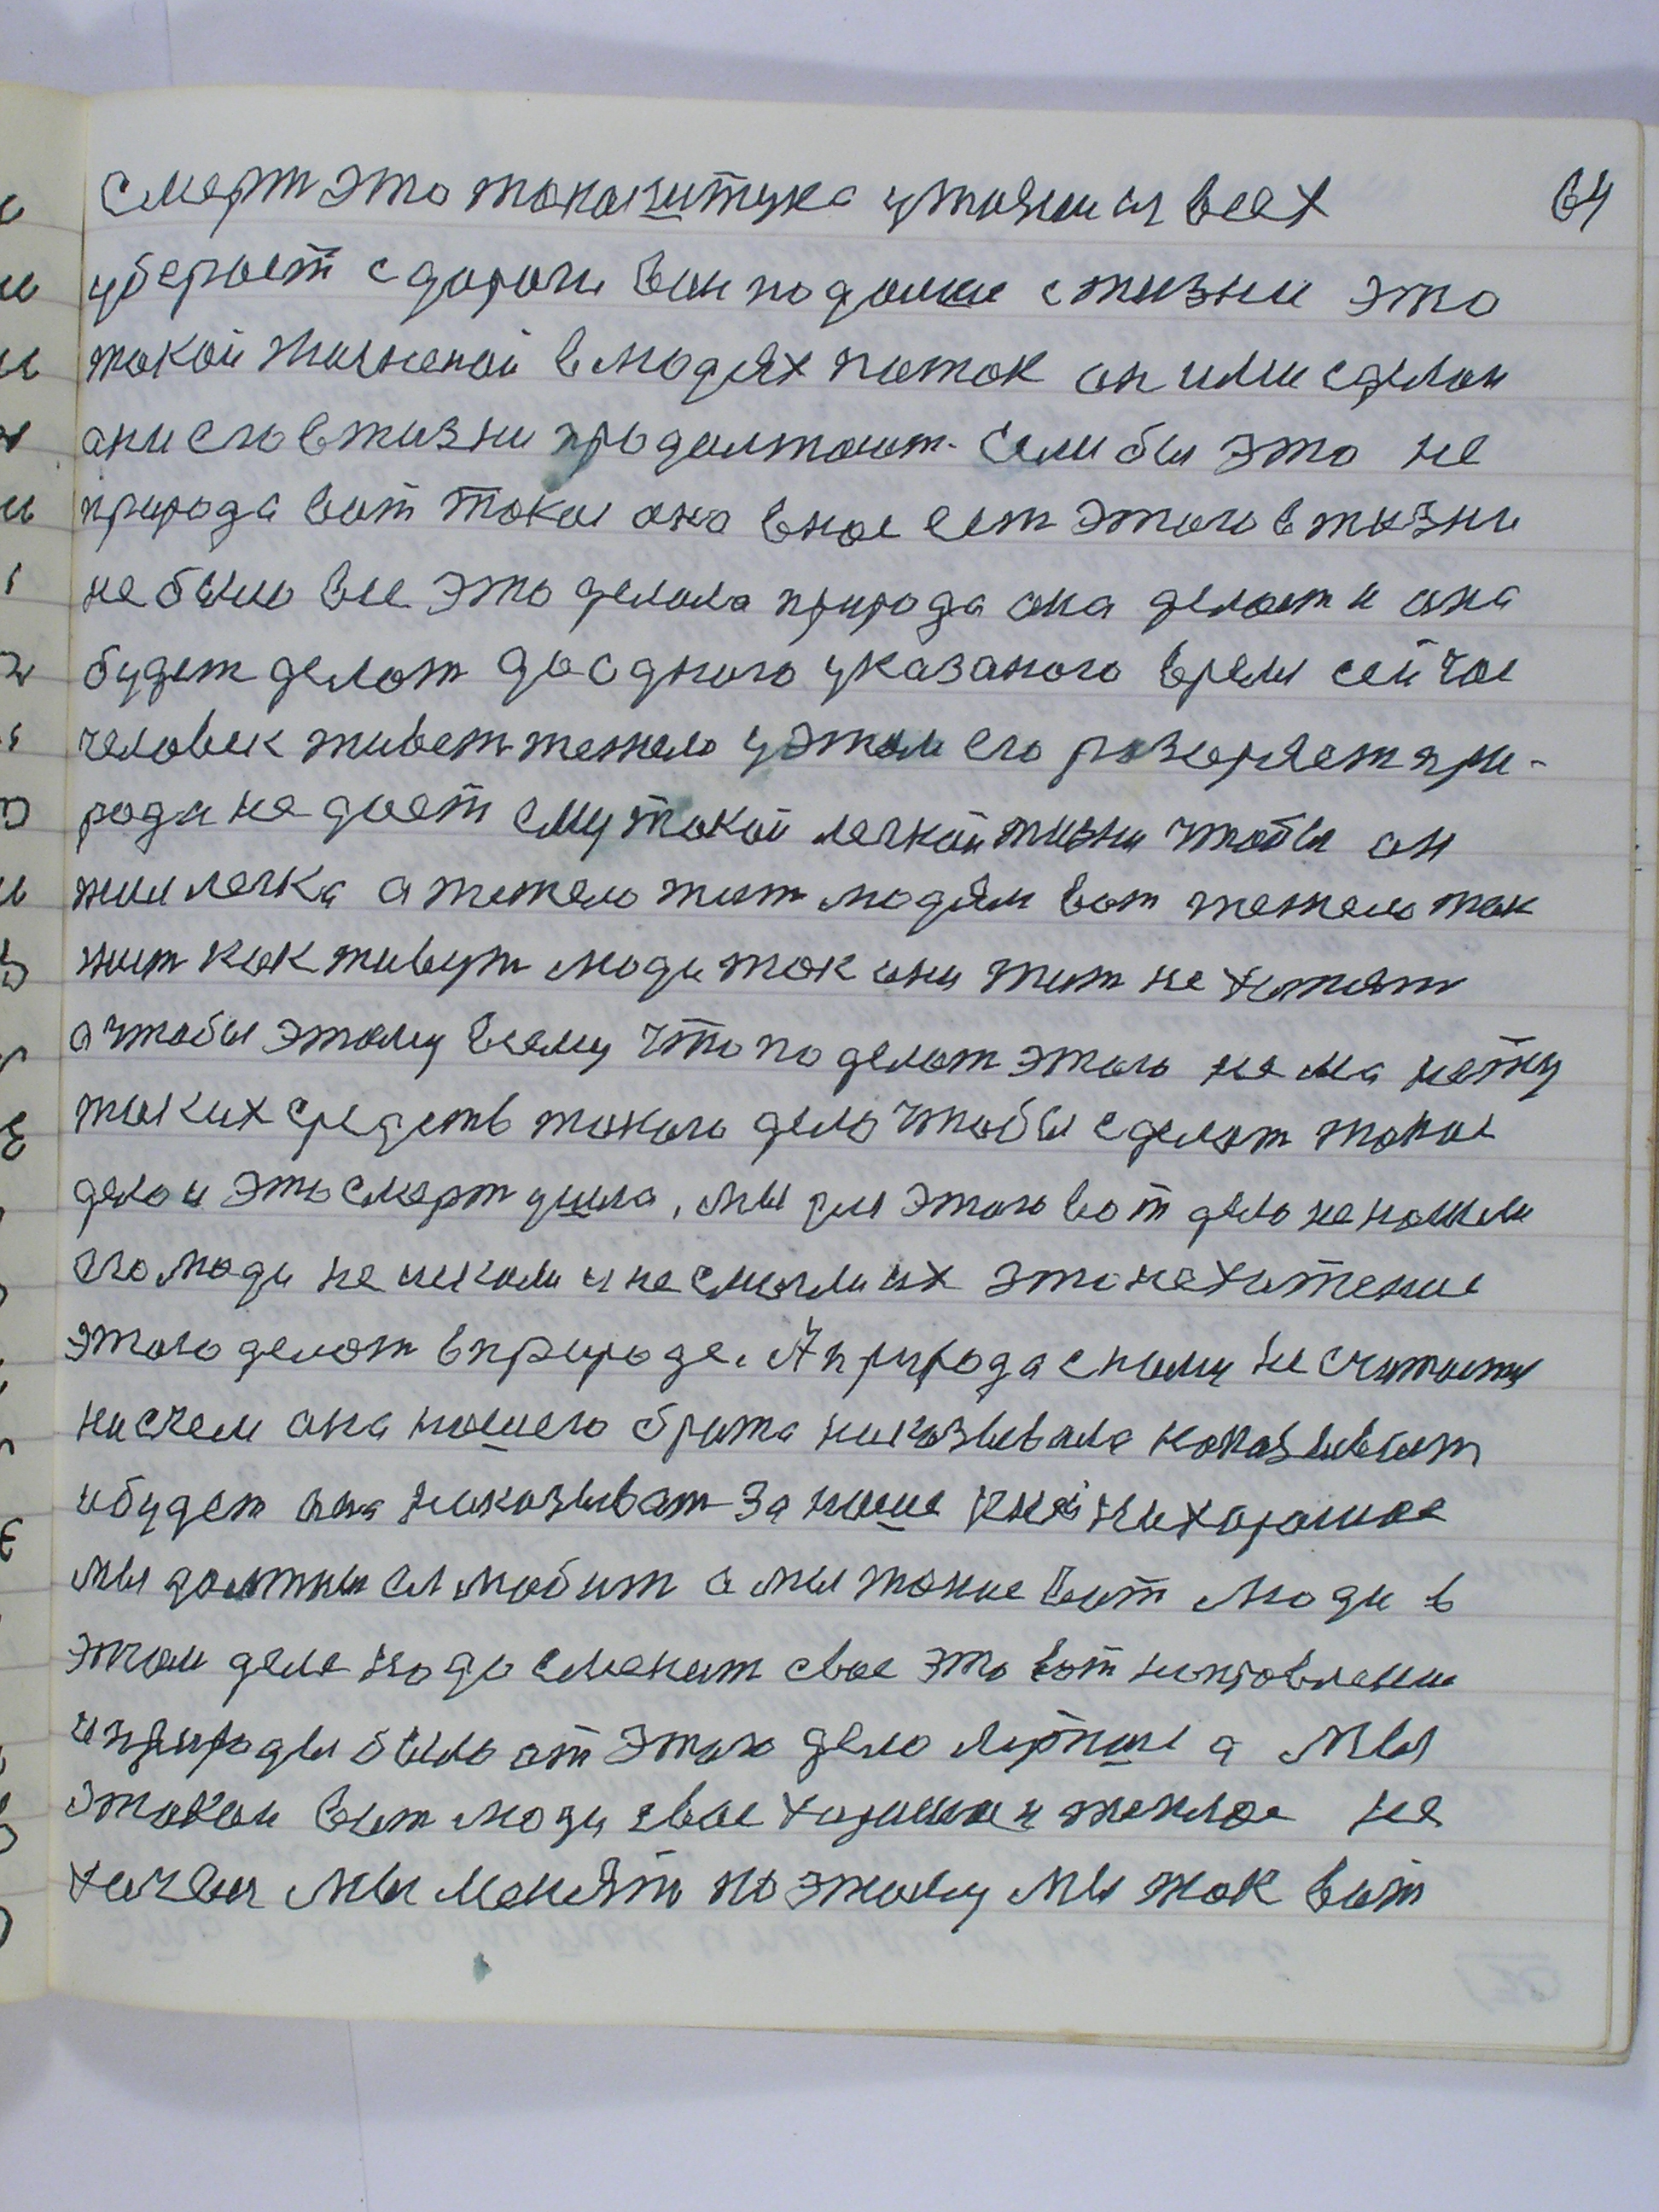 Смерт это такая штука утаянная всех 64
уберает с дароги вон подалше с жизни это
такой жизненой в людях паток он ими сделан
они его в жизни продолжают. Если бы это не
природа вот такая она в нас ест этого в жизни
не было все это делала природа она делает и она
будет делат до одного указаного время сейчас
человек живет тежело у этом его разоряет при-
рода не дает ему такой легкой жизни чтобы он
жил легка а тежело жит людям вот тежело так
жит как живут люди так они жит не хотят
а чтобы этому всему что поделат этого нема нету
таких средств такого дела чтобы сделат такое
дело и это смерт ушла, мы для этого вот дело не нашли
его люди не искали и не смогли их это не хотение
этого делат в природе. А природа с нами не считается
ни с чем она нашего брата наказывала наказывает
и будет она наказыват за наше нехорошое
мы должны ея любит а мы такие вот люди в
этом деле надо сменит свое это вот направление
и природы было от этого дело лутше а мы
этакаи вот люди свое хорошое и теплое не
хочем мы менять поэтому мы так вот